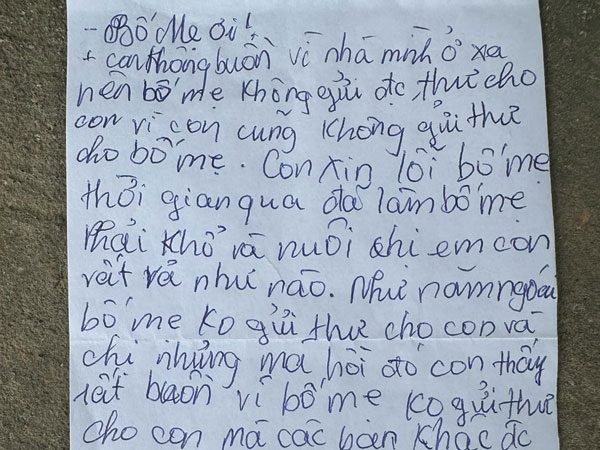 - Bố Mẹ ơi!
+ con không buồn vì nhà mình ở xa
nên bố mẹ không gửi đc thư cho
con vì con cũng không gửi thư
cho bố mẹ. Con xin lỗi bố mẹ
thời gian qua đã làm bố mẹ
Phải Khổ và nuôi chị em con
vất vả như nào. Như năm ngoái
bố mẹ ko gửi thư cho con và
chị nhưng mà hồi đó con thấy
rất buồn vì bố mẹ ko gửi thư
cho con mà các bạn Khác đc